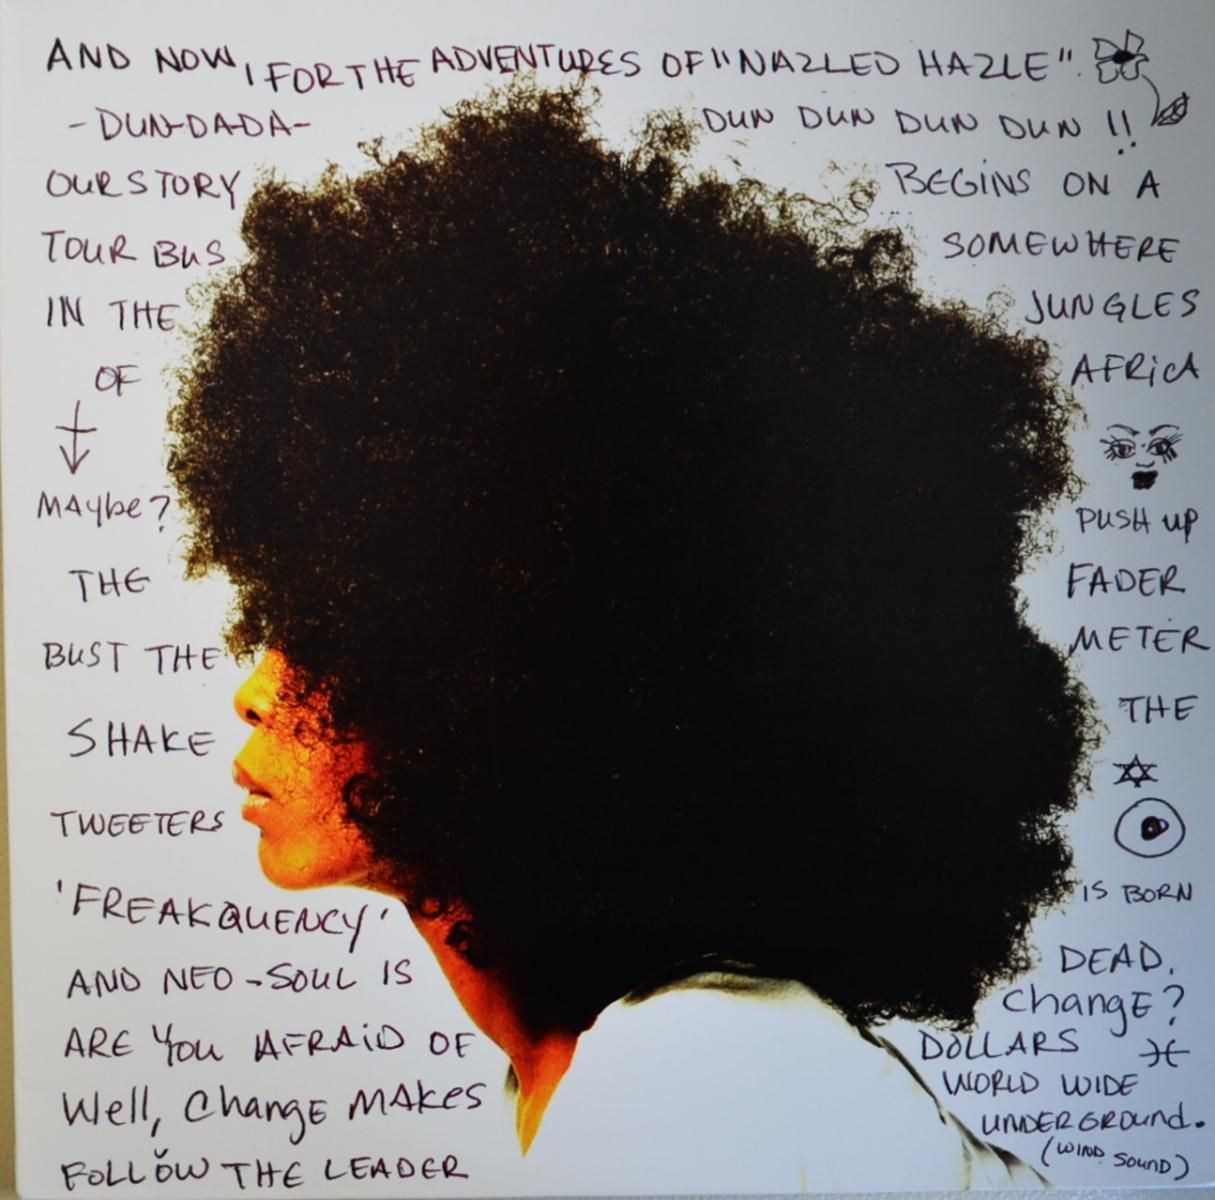 AND NOW, FOR THE ADVENTURES OF "NAZLED HAZLE".
-DUN-DA-DA- DUN DUN DUN DUN !!
OUR STORY BEGINS ON A
TOUR BUS SOMEWHERE
IN THE JUNGLES
OF AFRICA
MAYbe? PUSH UP
THE FADER
BUST THE METER
SHAKE THE
TWEETERS
'FREAKQUENCY' IS BORN
AND NEO-SOUL IS DEAD.
ARE YOU AFRAID OF change?
Well, change MAKES DOLLARS
FOLLOW THE LEADER WORLD WIDE
UNDERGROUND.
(WIND SOUND)